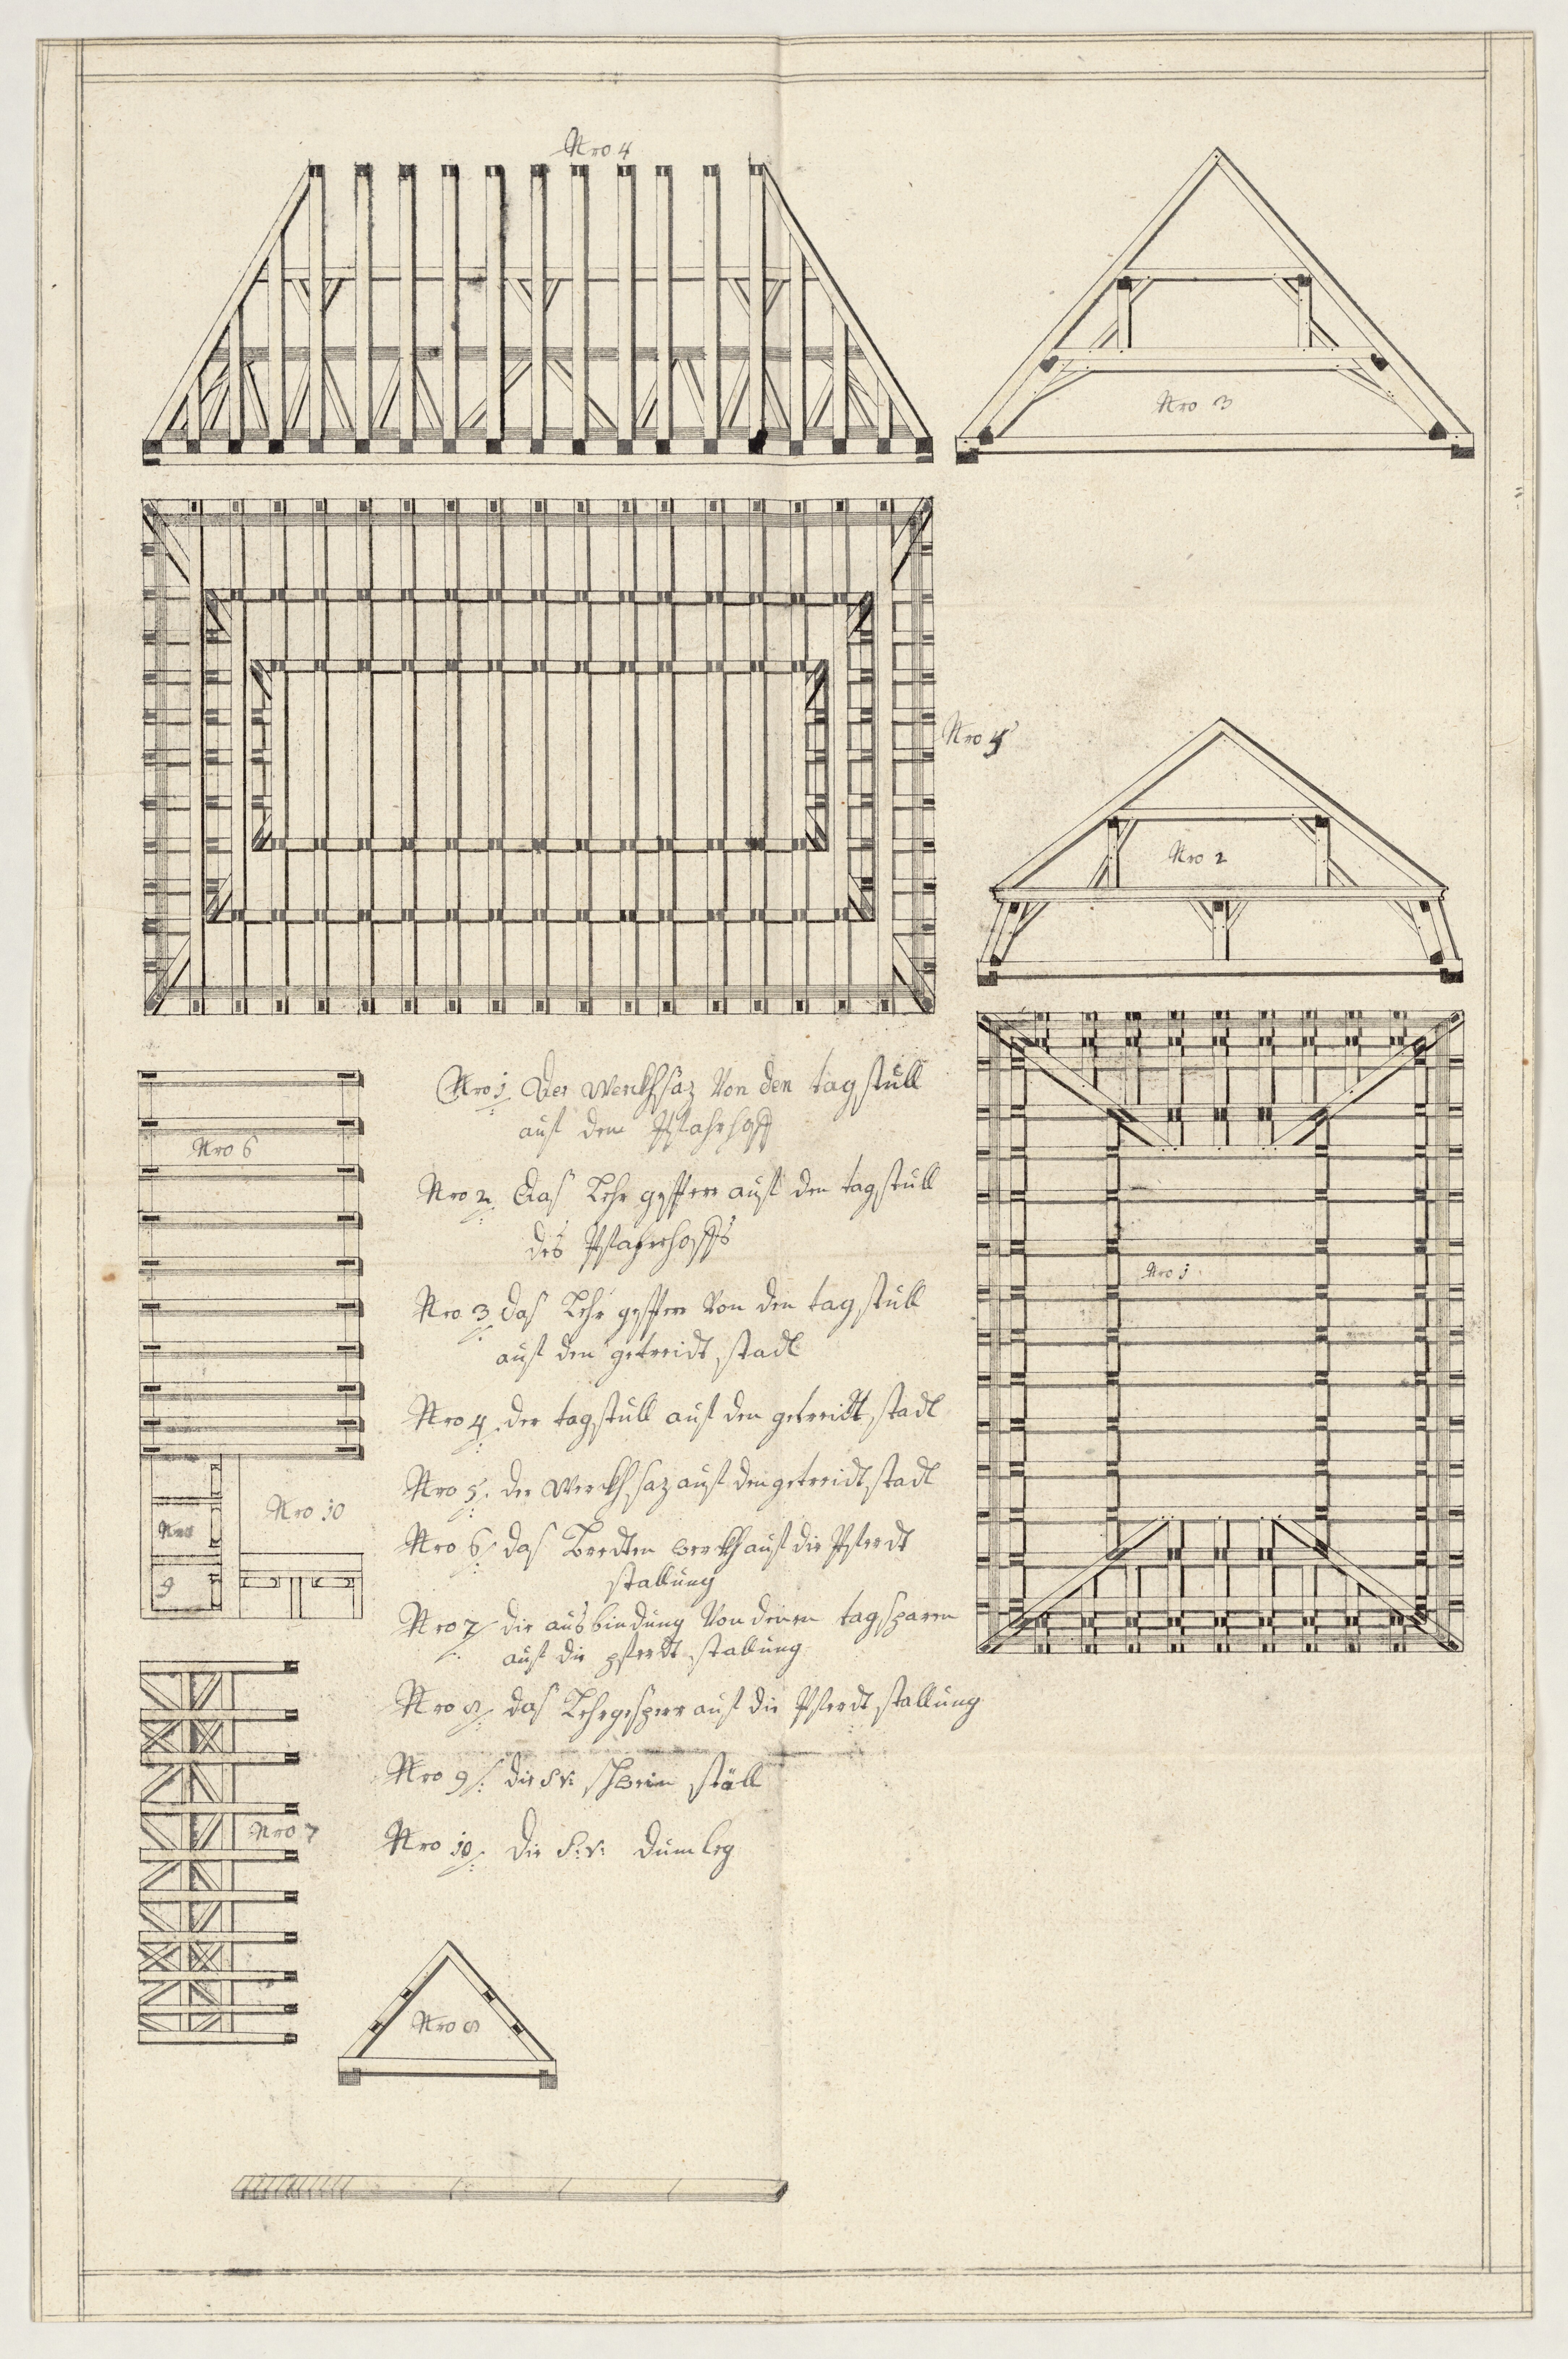 Nro 4
Nro 3
Nro 5
Nro 2
Nro 1
Nro 6
Nro 10
9
Nro 7
Nro 8
Nro 1. Der Werckhsaz Von den tagstull
auf dem Pfahrhoff
Nro 2. das Lehr gesperr auf den tagstull
des Pfahrhoffs
Nro 3 das Lehr gesperr Von den tag stull
auf den getreidt stadl
Nro 4. der tagstull auf den getreidt stadl
Nro 5. der Werckhsaz auf den getreidt stadl
Nro 6. das werckh auf die Pferdt
stallung
Nro 7. die ausbindung Von denen tagsparen
auf die pferdt stallung
Nro 8. das Lehrgesperr auf die Pferdt stallung
Nro 9. die S: v: schwein ställ
Nro 10. die S: v: